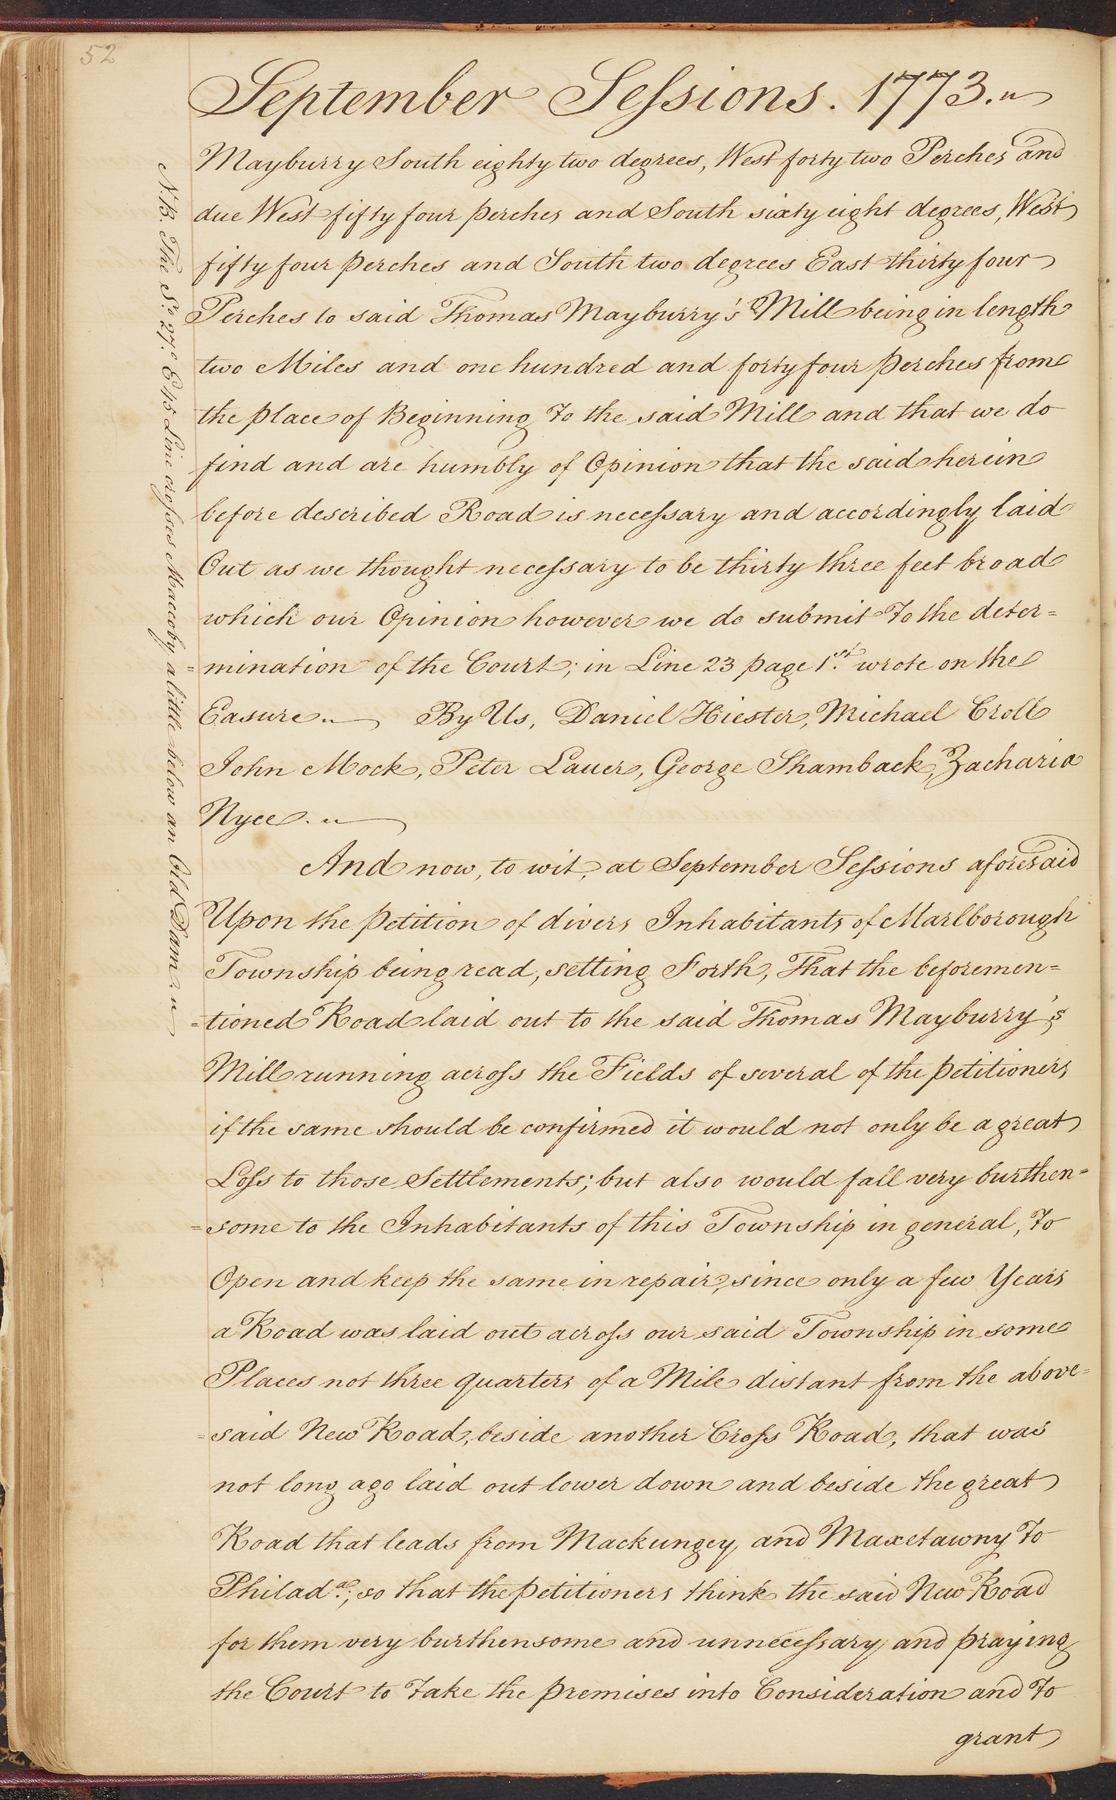 52
September Sessions. 1773.
Mayburry South eighty two degrees, West forty two Perches and
due West fifty four perches and South sixty eight degrees, West
fifty four perches and South two degrees East thirty four
Perches to said Thomas Mayburry's Mill being in length
two Miles and one hundred and forty four perches from
the place of Beginning To the said Mill and that we do
find and are humbly of Opinion that the said herein
before described Road is necessary and accordingly laid
Out as we thought necessary to be thirty three feet broad
which our Opinion however we do submit To the deter=
=mination of the Court; in Line 23 page 1.st wrote on the
Easure. By Us, Daniel Hiester, Michael Croll
John Mock, Peter Lauer, George Shamback, Zacharia
Nyce.
And now, to wit, at September Sessions aforesaid
Upon the Petition of divers Inhabitants of Marlborough
Township being read, setting Forth, That the beforemen=
=tioned Road laid out to the said Thomas Mayburry's
Mill running across the Fields of several of the petitioners
if the same should be confirmed it would not only be a great
Loss to those Settlements; but also would fall very burthen=
=some to the Inhabitants of this Township in general, To
Open and keep the same in repair, since only a few Years
a Road was laid out across our said Township in some
Places not three quarters of a Mile distant from the above=
=said New Road, beside another Cross Road, that was
not long ago laid out lower down and beside the great
Road that leads from Mackungey, and Maxetawny To
Philad.a; so that the petitioners think the said New Road
for them very burthensome and unnecessary and praying
the Court to Take the premises into Consideration and To
grant
N.B. The S.o 27.o E 45 Line crosses Macoby a little below an Old Dam